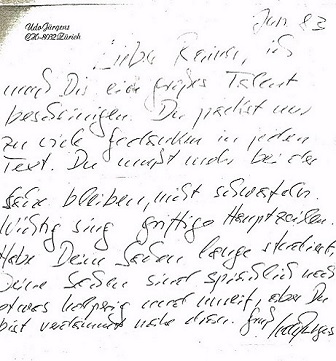 Udo Jürgens
CH-8032 Zürich
Jan 83
Lieber Rainer, ich
muß Dir ein großes Talent
bescheinigen. Du packst nur
zu viele Gedanken in jeden
Text. Du mußt mehr bei der
Sache bleiben, nicht schwafeln.
Wichtig sing griffige Hauptzeilen.
Habe Deine Sachen lange studiert,
Deine Sachen sind sprachlich noch
etwas holperig und unreif, aber Du
bist verdammt nahe dran. Gruß